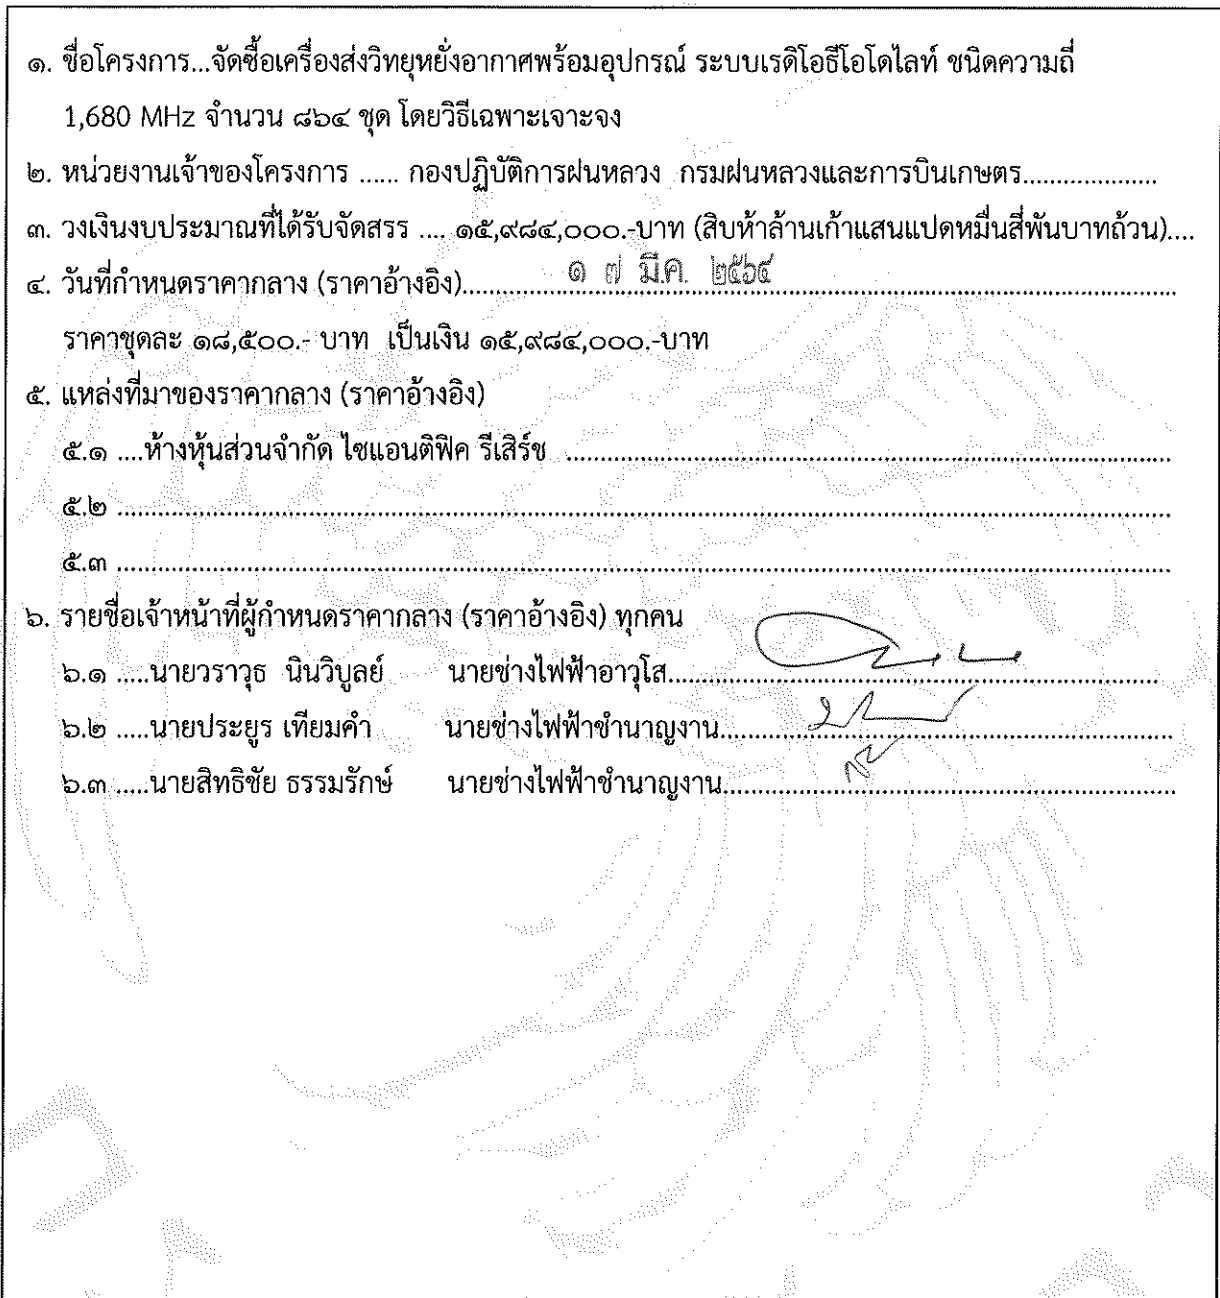 ๑. ชื่อโครงการ...จัดซื้อเครื่องส่งวิทยุหยั่งอากาศพร้อมอุปกรณ์ ระบบเรดิโอธีโอโดไลท์ ชนิดความถี่
1,680 MHz จำนวน ๘๖๔ ชุด โดยวิธีเฉพาะเจาะจง
๒. หน่วยงานเจ้าของโครงการ ...... กองปฏิบัติการฝนหลวง กรมฝนหลวงและการบินเกษตร...................
๓. วงเงินงบประมาณที่ได้รับจัดสรร .... ๑๕,๙๘๔,๐๐๐.-บาท (สิบห้าล้านเก้าแสนแปดหมื่นสี่พันบาทถ้วน)....
๔. วันที่กำหนดราคากลาง (ราคาอ้างอิง)............... ๑ ๗ มี.ค. ๒๕๖๔ ...............
ราคาชุดละ ๑๘,๕๐๐.- บาท เป็นเงิน ๑๕,๙๘๔,๐๐๐.-บาท
๕. แหล่งที่มาของราคากลาง (ราคาอ้างอิง)
๕.๑ ....ห้างหุ้นส่วนจำกัด ไซแอนติฟิค รีเสิร์ช ...............
๕.๒ ...............
๕.๓ ...............
๖. รายชื่อเจ้าหน้าที่ผู้กำหนดราคากลาง (ราคาอ้างอิง) ทุกคน
๖.๑ .....นายวราวุธ นินวิบูลย์ นายช่างไฟฟ้าอาวุโส...............
๖.๒ .....นายประยูร เทียมคำ นายช่างไฟฟ้าชำนาญงาน...............
๖.๓ .....นายสิทธิชัย ธรรมรักษ์ นายช่างไฟฟ้าชำนาญงาน...............